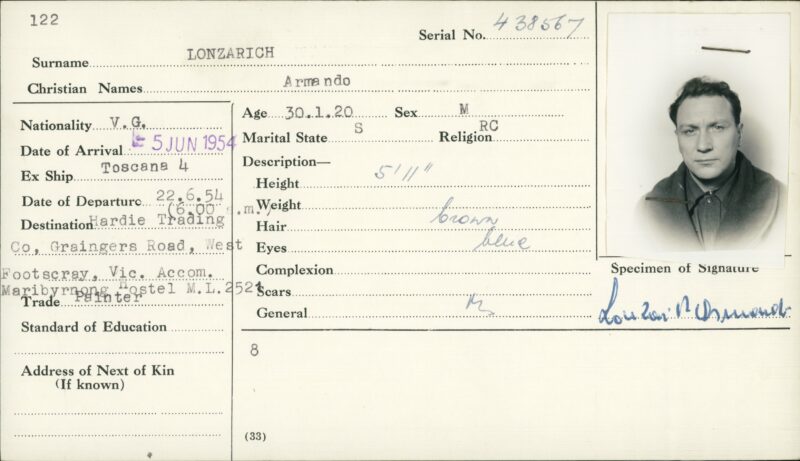 122
Serial No. 438567
Surname LONZARICH
Christian Names Armando
Nationality V.G.
Date of Arrival 5 JUN 1954
Ex Ship Toscana 4
Date of Departure 22.6.54
(6.00 .m.,
Destination Hardie Trading
Co, Graingers Road, West
Footscray, Vic. Accom.
Maribyrnong Hostel M.L.2521
Trade Painter
Standard of Education
Address of Next of Kin
(If known)
Age 30.1.20 Sex M
Marital State S Religion RC
Description—
Height 5'11"
Weight
Hair brown
Eyes blue
Complexion
Scars
General
8
(33)
Specimen of Signature